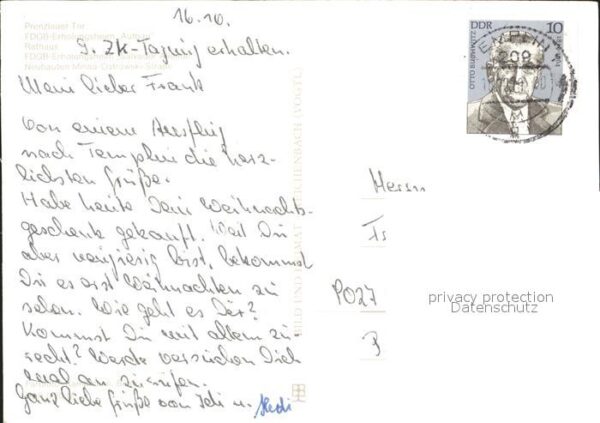 16.10.
Prenzlauer Tor
FDGB-Erholungsheim "Aufbau"
Rathaus
FDGB-Erholungsheim "Salvador Allende"
Neubauten Minna-Ostrowski-Straße
9. ZK-Tagung erhalten.
Mein lieber Frank
Von einem Ausflug
nach Templin die herz-
lichsten Grüße.
Habe heute Dein Weihnachts-
geschenk gekauft. Weil Du
aber neugierig bist, bekommst
Du es erst Weihnachten zu
sehen. Wie geht es Dir?
Kommst Du mit allem zu-
recht? Werde versuchen Dich
mal an zurufen.
Ganz liebe Grüße von Ichi u. Hedi
BILD UND HEIMAT REICHENBACH (VOGTL)
DDR 10
OTTO BUCHWITZ
TEMPLIN
209
Herrn
Ts
PO27
P
privacy protection
Datenschutz